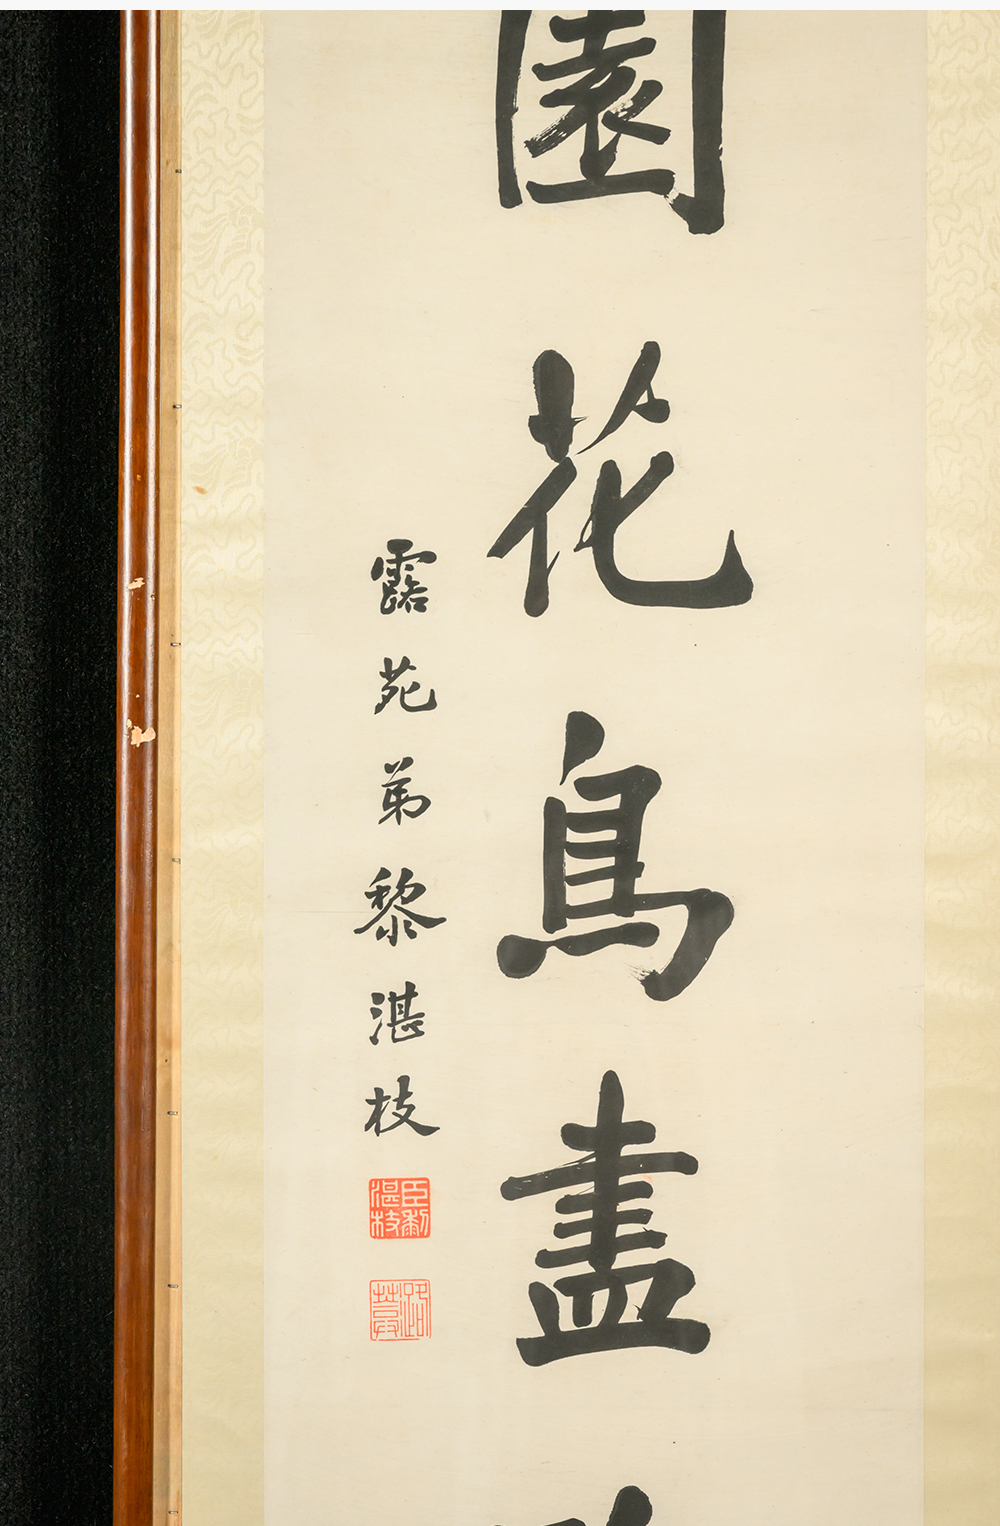 園花鳥盡
露苑弟黎湛枝
臣黎湛枝